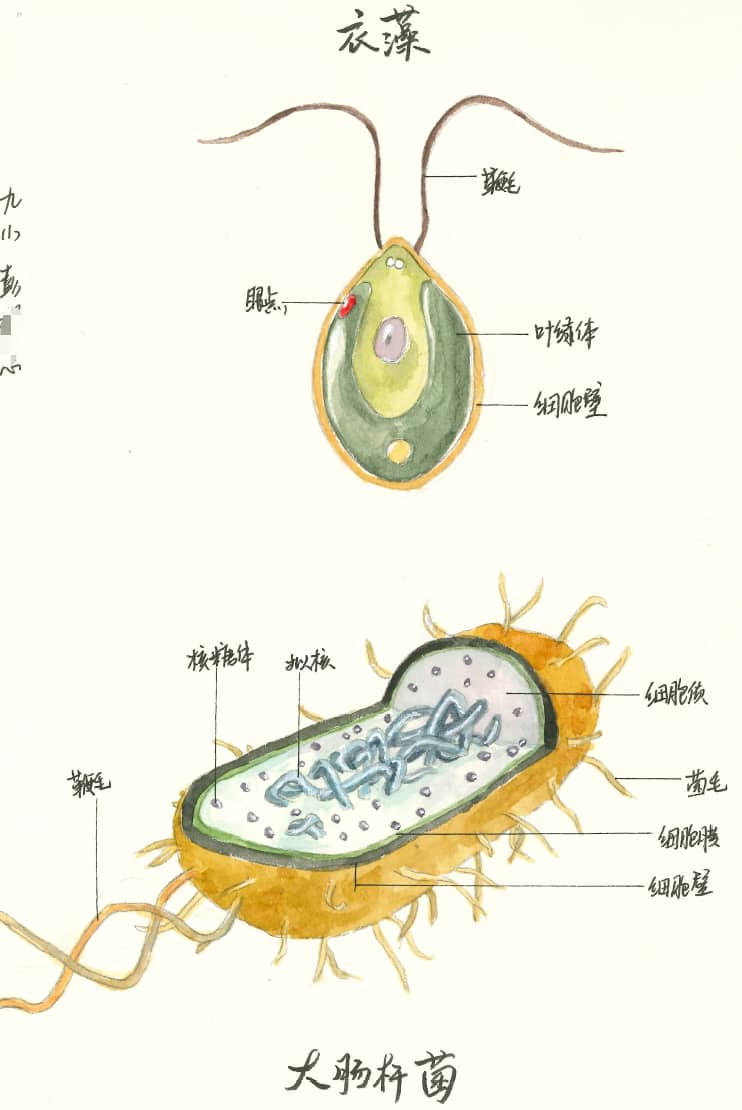 衣藻
鞭毛
眼点
叶绿体
细胞壁
核糖体
拟核
细胞质
鞭毛
菌毛
细胞膜
细胞壁
大肠杆菌
九
小
彭
心